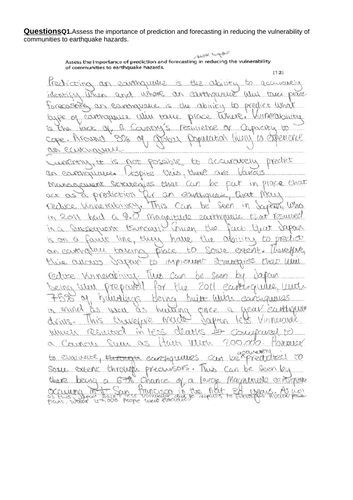 QuestionsQ1.Assess the importance of prediction and forecasting in reducing the vulnerability of
communities to earthquake hazards.
Assess the importance of prediction and forecasting in reducing the vulnerability
of communities to earthquake hazards.
(12)
Predicting an earthquake is the ability to accurately
identify when and where an earthquake will take place
forecasting an earthquake is the ability to predict what
type of earthquake will take place there. Vulnerability
is the lack of a Country's resilience or Capacity to
cope. Around % of global population living to experience
an earthquake
Currently, it is not possible to accurately predict
an earthquake. Despite this, there are various
Management Strategies that can be put in place that
act as a prediction for an earthquake, that may
reduce vulnerability. This can be seen in Japan, who
in 2011 had a 9.0 magnitude earthquake that resulted
in a Subsequent tsunami. Given the fact that Japan
is on a fault line, they have the ability to predict
an earthquake taking place to some extent. therefore,
this allows Japan to implement strategies that will
reduce Vulnerability. This can be seen by Japan
being well prepared for the 2011 earthquake, with
75% of buildings being built with earthquakes
in mind as well as having once a year earthquake
drills. This therefore made Japan less vulnerable
which resulted in less deaths compared to
a Country Such as Haiti with 200,000. However
to Summarise, earthquakes can be accurately predicted to
some extent through precursors. This can be seen by
there being a 67% Chance of a large Magnitude
occuring in San Francisco in the next years. As well
as this, Japan were less vulnerable due to nuclear
where 47,000 people were evacuated